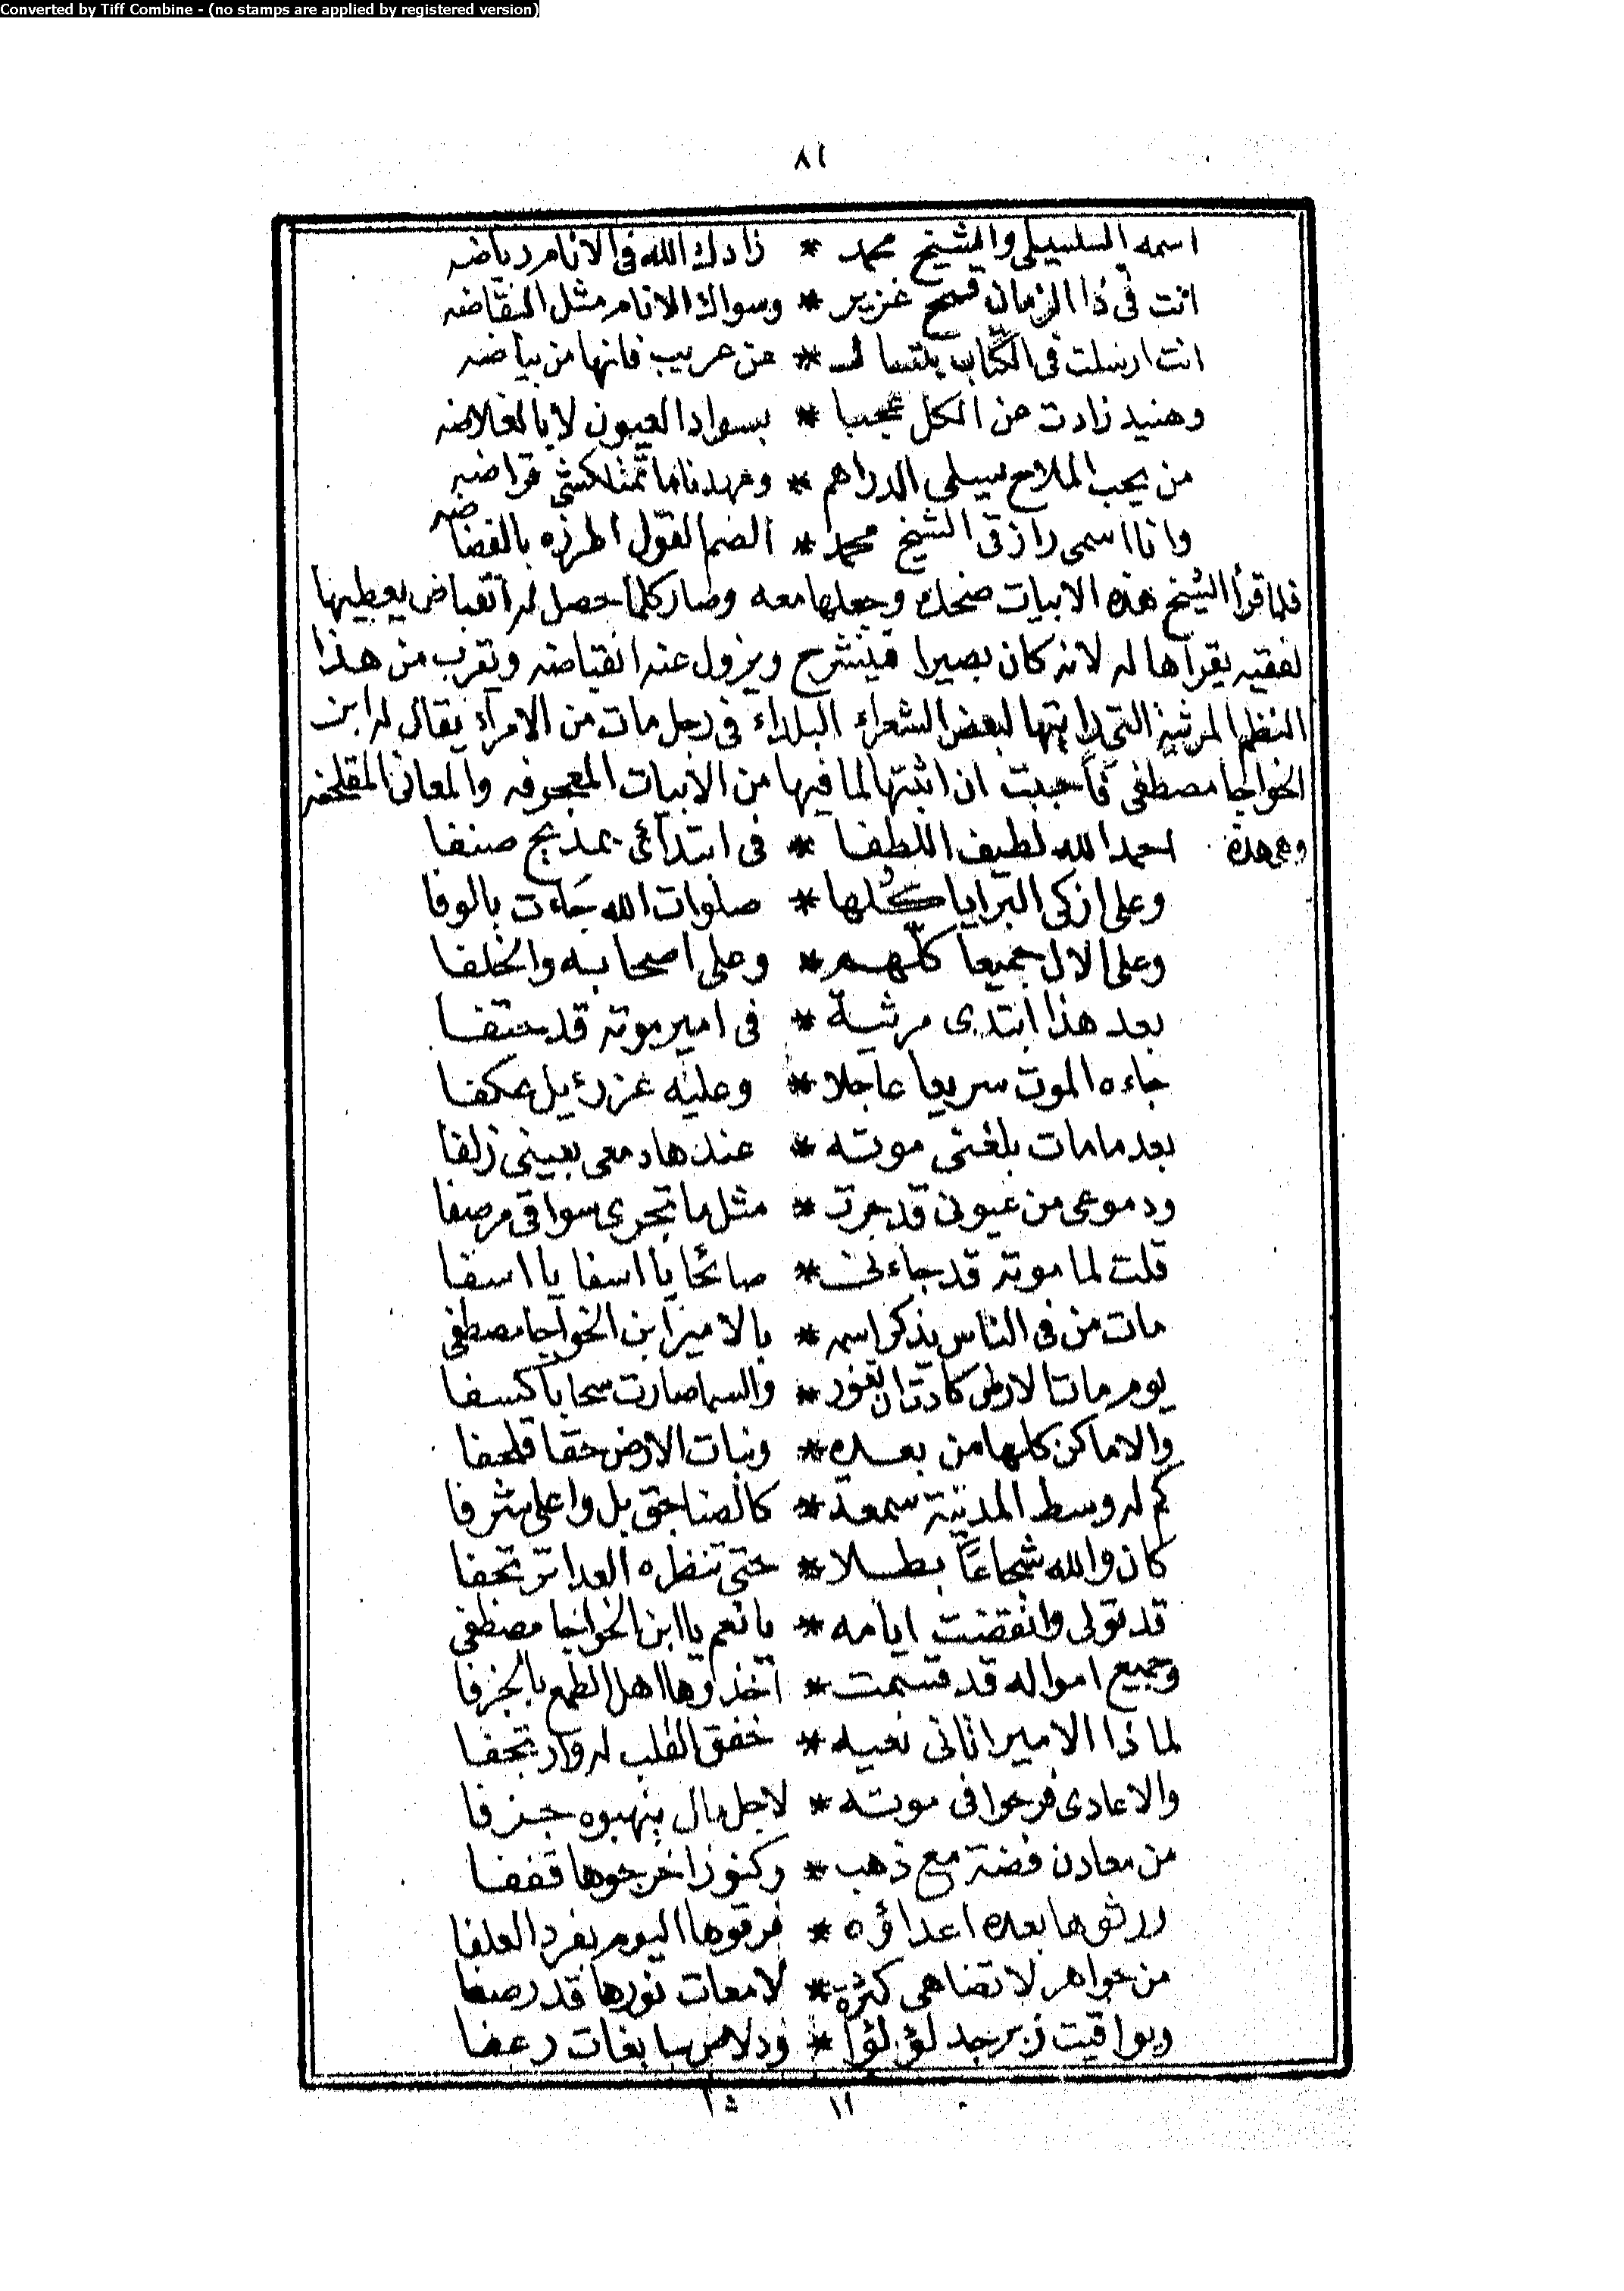 Converted by Tiff Combine - (no stamps are applied by registered version)
٨١
اسمه السلسبيلى والشيخ محمد * زادك الله فى الانام رياضه
انت فى ذا الزمان قمح غزير * وسواك الانام مثل النقاضه
انت ارسلت فى الكتاب * من فانها من بياضه
وهنيد زادت من الكل عجبا * بسواد العيون لا بالغلاضه
من يحب الملاح يسلى الدراهم * قراضيه
وانا اسمى رازق الشيخ محمد * انضم القول اطرزه بالفضاضه
فلما قرأ الشيخ هذه الابيات ضحك وجعلها معه وصار كلما حصل له انقباض يعطيها
لفقيه يقرأها له لانه كان بصيرا فينشرح ويزول عنه انقباضه وتقرب من هذا
النظم المرثية التى رايتها لبعض الشعراء البلداء فى رجل مات من الامرآء يقال له ابن
الخواجا مصطفى فأحببت ان اثبتها لما فيها من الابيات المعجرفه والمعانى المقلحفه
وهى هذه احمد الله لطيف اللطفا * فى ابتدآئى بمديح صنفا
وعلى ازكى البرايا كلها * صلوات الله جاءت بالوفا
وعلى الال جميعا كلهم * وعلى اصحابه والخلفا
بعد هذا ابتدى مرثية * فى امير موته قد حتفا
جاءه الموت سريعا عاجلا * وعليه عزرئيل عكفا
بعد ما مات بلغنى موته * عندها دمعى بعينى زلفا
ودموعى من عيونى قد جرت * مثل ما تجرى سواقى مرصفا
قلت لما موته قد جاءنى * صائحا يا اسفا يا اسفا
مات من فى الناس يذكر اسمه * بالامير ابن الخواجا مصطفى
يوم مات الارض كادت ان تغور * والسما صارت سحابا كسفا
والاماكن كلها من بعده * ونبات الارض حقا قلحفا
كم له وسط المدينة سمعة * كالصناجق بل واعلى شرفا
كان والله شجاعاً بطلا * حتى تنظره العدا ترتجفا
قد تولى وانقضت ايامه * يا نعم يا ابن الخواجا مصطفى
وجميع امواله قد قسمت * اتخذوها اهل الطمع بالجزفا
لما ذا الامير اتانى نعيه * خفق القلب له وارتجفا
والاعادى فرحوا فى موته * لاجل مال ينهبوه جزفا
من معادن فضة مع ذهب * وكنوز اخرجوها قففا
ورثوها بعده اعداؤه * فرقوها اليوم بفرد العلفا
من جواهر لا تضاهى كثرة * لامعات نورها قد رصفا
ويواقيت زبرجد لؤلؤا * ودلاص سابغات رعفا
١١ ش ١